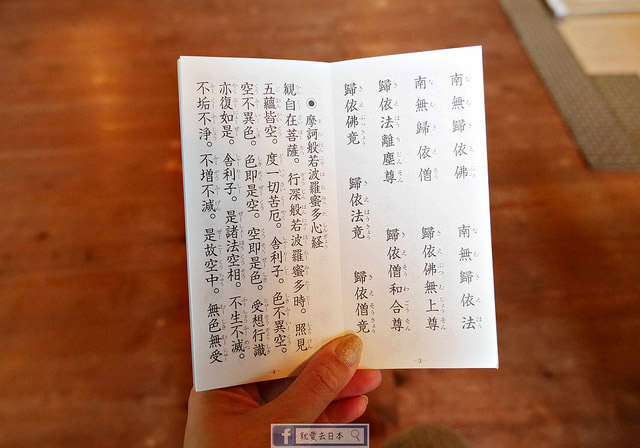 南無歸依佛　南無歸依法
南無歸依僧　歸依佛無上尊
歸依法離塵尊　歸依僧和合尊
歸依佛竟　歸依法竟　歸依僧竟
-3-
●摩訶般若波羅蜜多心経
観自在菩薩。行深般若波羅蜜多時。照見
五蘊皆空。度一切苦厄。舎利子。色不異空。
空不異色。色即是空。空即是色。受想行識
亦復如是。舎利子。是諸法空相。不生不滅。
不垢不淨。不增不減。是故空中。無色無受
-4-
f 就愛去日本